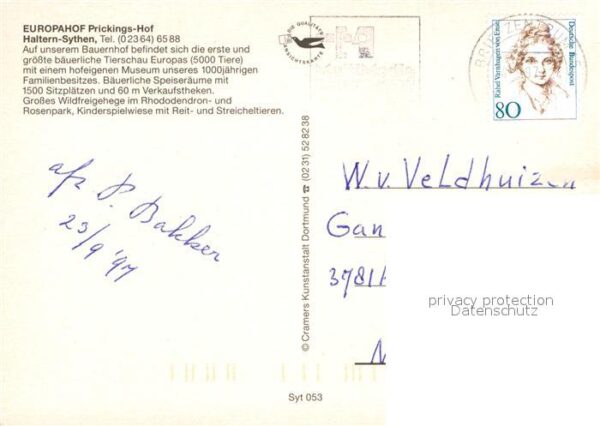 EUROPAHOF Prickings-Hof
Haltern-Sythen, Tel. (0 23 64) 65 88
Auf unserem Bauernhof befindet sich die erste und
größte bäuerliche Tierschau Europas (5000 Tiere)
mit einem hofeigenen Museum unseres 1000jährigen
Familienbesitzes. Bäuerliche Speiseräume mit
1500 Sitzplätzen und 60 m Verkaufstheken.
Großes Wildfreigehege im Rhododendron- und
Rosenpark, Kinderspielwiese mit Reit- und Streicheltieren.
DIE QUALITÄTS
ANSICHTSKARTE
BRIEFZENTRUM
Rahel Varnhagen von Ense
Deutsche Bundespost
80
afz P. Bakker
23/9 '97
© Cramers Kunstanstalt Dortmund ☎ (02 31) 52 82 38
W.v. Veldhuizen
Gan
3781
privacy protection
Datenschutz
Syt 053